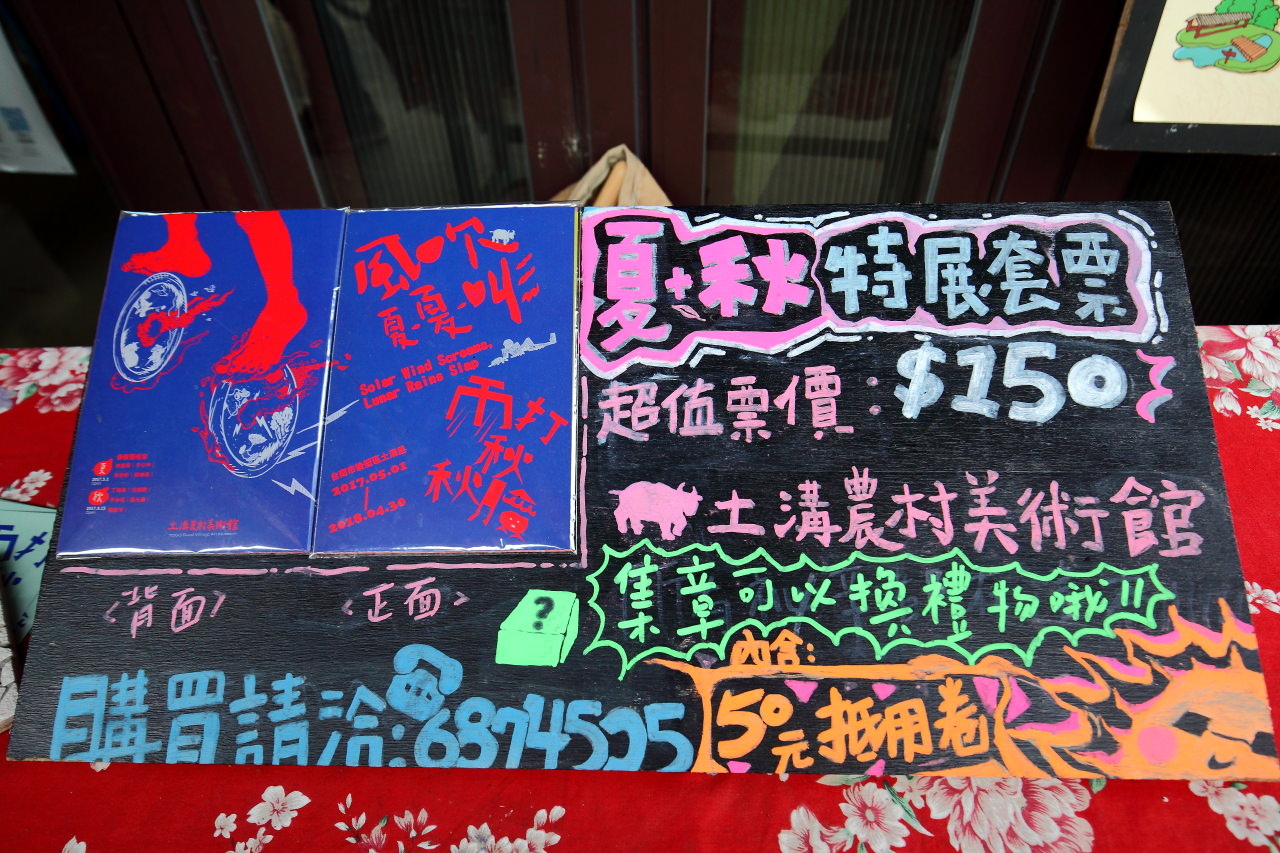 風吹
夏夏叫
Solar Wind Screams,
Lunar Rains Slap
雨打
秋
秋臉
台南市後壁區土溝里
2017.05.01
2018.04.30
夏
2017.5.1
秋
土溝農村美術館
夏+秋 特展套票
超值票價：$150
土溝農村美術館
集章可以換禮物哦!!
<背面> <正面>
?
購買請洽:6874505
內含:
50元抵用卷